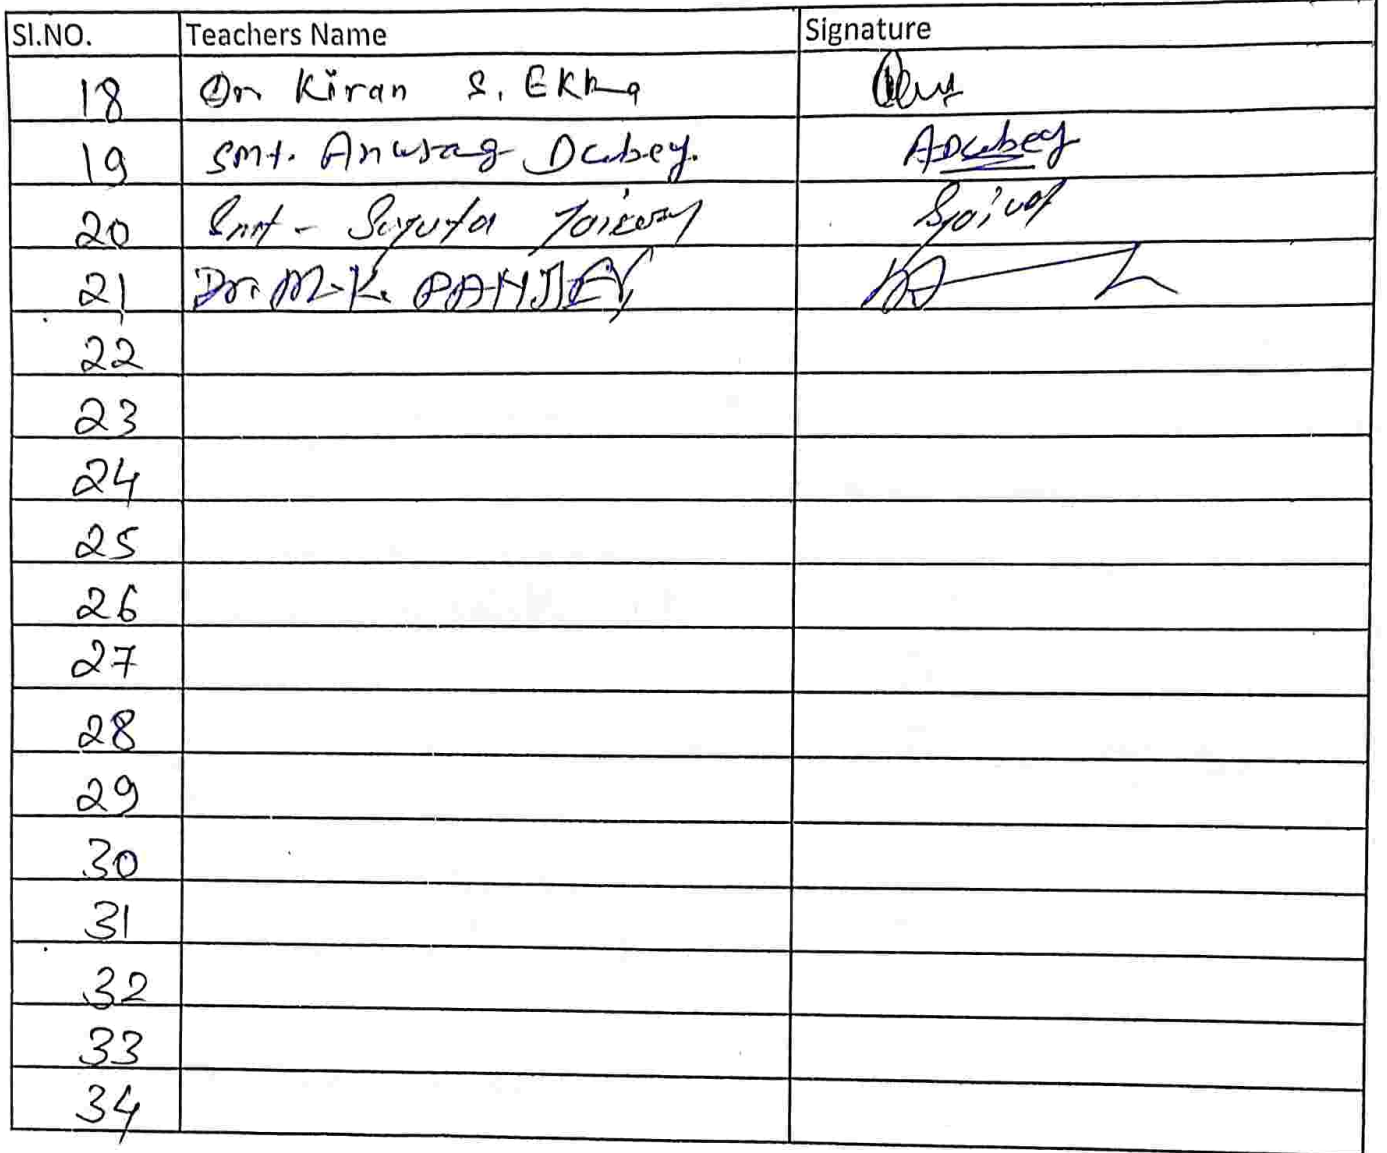 Sl.NO. Teachers Name Signature
18 Dr Kiran S. Ekka
19 Smt. Anurag Dubey. ADubey
20 Smt - Sujata Jaiswal
21 Dr. M.K. PANDEY
22
23
24
25
26
27
28
29
30
31
32
33
34